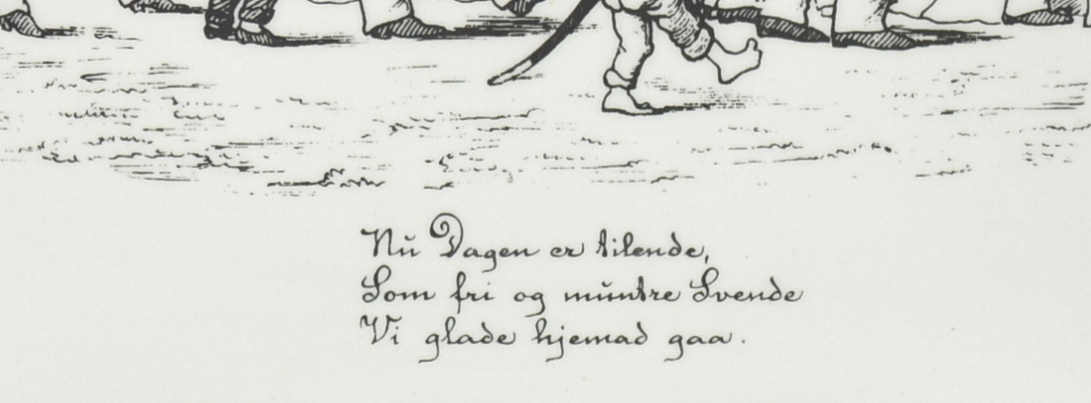 Nu Dagen er tilende,
Som fri og muntre Svende
Vi glade hjemad gaa.